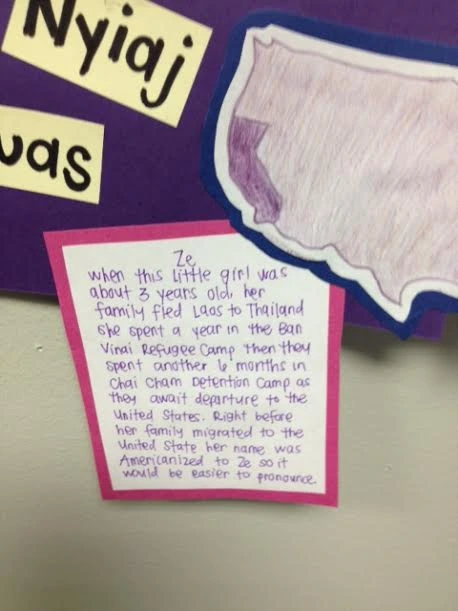 Nyiaj
uas
Ze
when this little girl was
about 3 years old, her
family fled Laos to Thailand
she spent a year in the Ban
Vinai Refugee Camp then they
spent another 6 months in
Chai Cham Detention Camp as
they await departure to the
United States. Right before
her family migrated to the
United State her name was
Americanized to Ze so it
would be easier to pronounce.